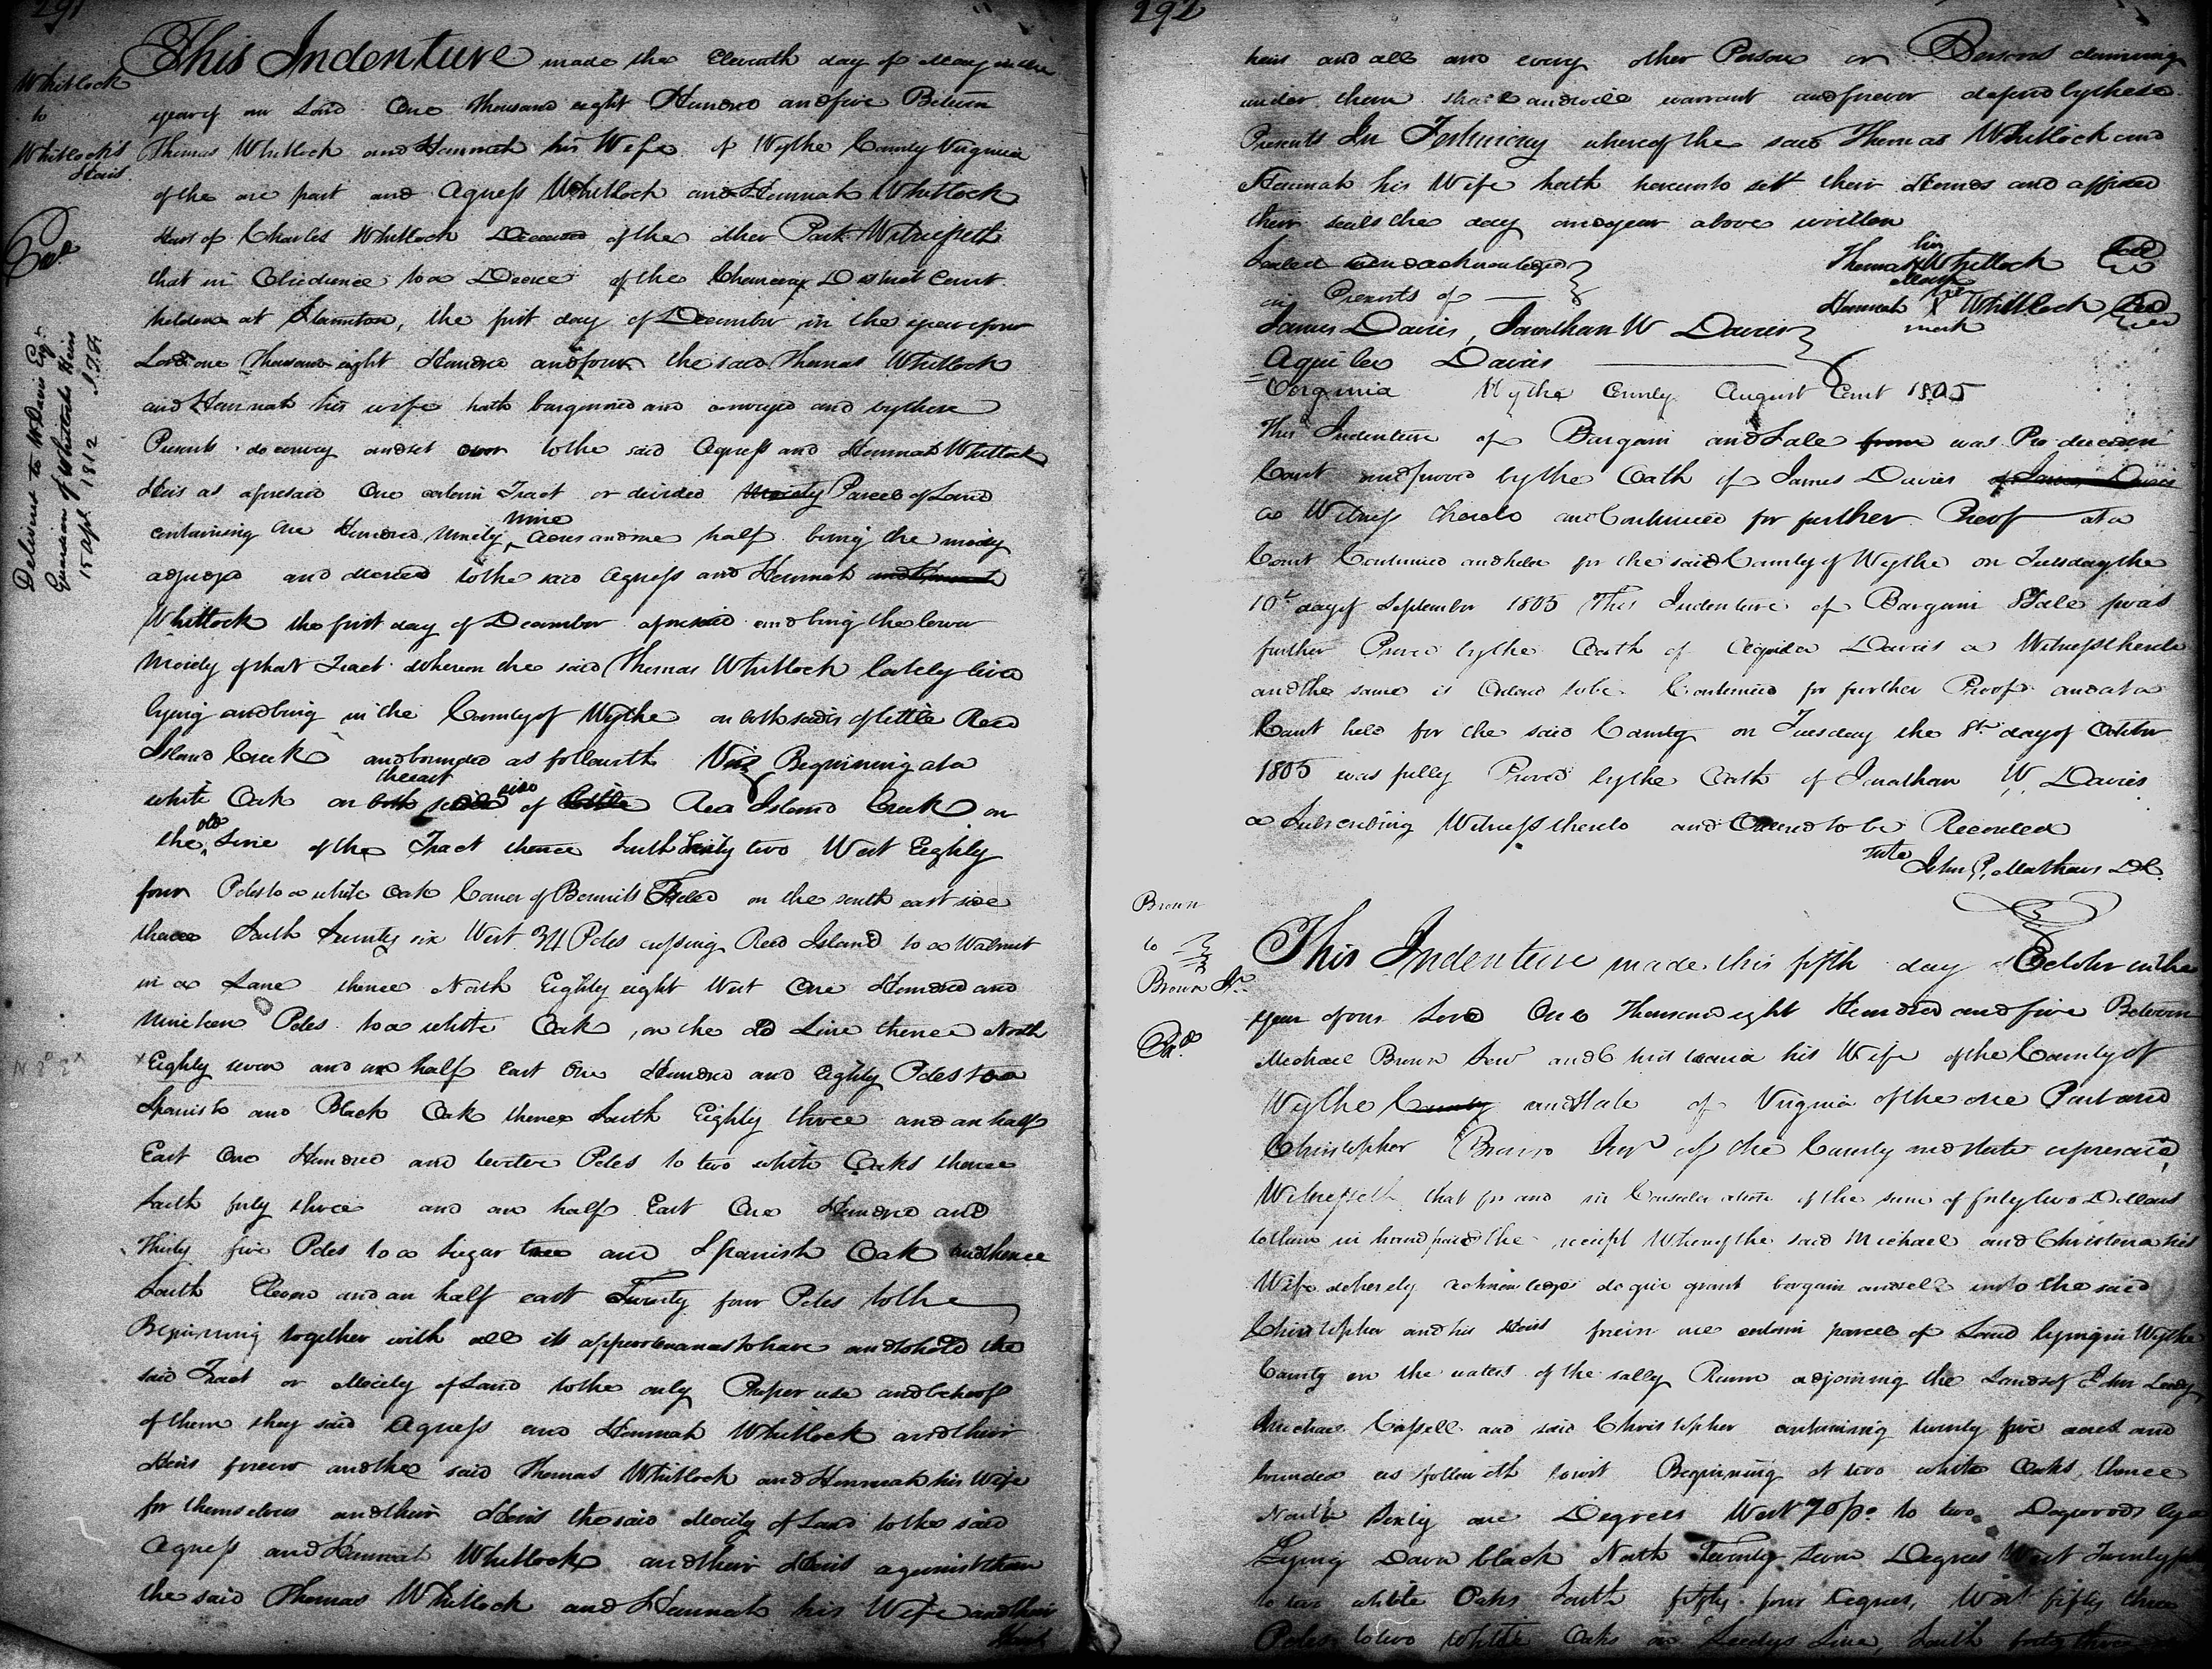 291
Whitlock
to
Whitlock's
Heirs
Exd
Delivered to W Davis Esqr
Guardian of Whitlocks Heirs
15 Apl. 1812
This Indenture made the Eleventh day of May in the
year of our Lord One thousand eight Hundred and five Between
Thomas Whitlock and Hannah his Wife of Wythe County Virginia
of the one part and Agness Whitlock and Hannah Whitlock
Heirs of Charles Whitlock Deceased of the other Part Witnesseth
that in Obedience to a Decree of the Chancery District Court
holden at Staunton, the first day of December in the year of our
Lord one Thousand eight Hundred and four the said Thomas Whitlock
and Hannah his wife hath bargained and conveyed and by these
Presents do convey and set over to the said Agness and Hannah Whitlock
Heirs as aforesaid One certain Tract or divided Moiety Parcel of Land
containing One Hundred Ninety nine Acres and one half being the moiety
adjudged and decreed to the said Agness and Hannah and Hannah
Whitlock the first day of December aforesaid and being the lower
Moiety of that Tract whereon the said Thomas Whitlock lately lived
lying and being in the County of Wythe on both sides of little Reed
Island Creek and bounded as followeth Viz Beginning at a
white Oak on both the east side of little Reed Island Creek on
the old Line of the Tract thence South Sixty two West Eighty
four Poles to a white Oak Corner of Field on the south east side
thence South Twenty six West 34 Poles crossing Reed Island to a Walnut
in a Lane thence North Eighty eight West One Hundred and
Nineteen Poles to a white Oak, on the old Line thence North
Eighty seven and an half East One Hundred and Eighty Poles to a
Spanish and Black Oak thence South Eighty three and an half
East One Hundred and twelve Poles to two white Oaks thence
South forty three and an half East One Hundred and
Thirty five Poles to a Sugar tree and Spanish Oak and thence
South Eleven and an half east Twenty four Poles to the
Beginning together with all its appurtenances to have and to hold the
said Tract or Moiety of Land to the only Proper use and behoof
of them they said Agness and Hannah Whitlock and their
Heirs forever and the said Thomas Whitlock and Hannah his Wife
for themselves and their Heirs the said Moiety of Land to the said
Agness and Hannah Whitlock and their Heirs against them
the said Thomas Whitlock and Hannah his Wife and their
Heirs
292
heirs and all and every other Person or Persons claiming
under them shall and will warrant and forever defend by these
Presents In Testimony whereof the said Thomas Whitlock and
Hannah his Wife hath hereunto sett their Hands and affixed
their seals the day and year above written
Sealed and acknowledged
in Presents of
Thomas his X mark Whitlock Seal
Hannah her X mark Whitlock Seal
James Davis, Jonathan W Davis
Aquilee Davis
Virginia Wythe County August Court 1805
This Indenture of Bargain and Sale from was Produced in
Court and proved by the Oath of James Davies of James Davis
a Witness thereto and Continued for further Proof at a
Court Continued and held for the said County of Wythe on Tuesday the
10th day of September 1805 This Indenture of Bargain & Sale was
further Proved by the Oath of Aquila Davis a Witness thereto
and the same is Ordered to be Continued for further Proof and at a
Court held for the said County on Tuesday the 8th day of October
1805 was fully Proved by the Oath of Jonathan W. Davies
a Subscribing Witness thereto and Ordered to be Recorded
Teste
John P. Mathews DC.
Brown
to
Brown Jr.
Exd
This Indenture made this fifth day October in the
year of our Lord One Thousand eight Hundred and five Between
Michael Brown Senr and Christeana his Wife of the County of
Wythe County and State of Virginia of the one Part and
Christopher Brown Junr of the County and State aforesaid,
Witnesseth that for and in Consideration of the sum of forty two Dollars
to them in hand paid the receipt Whereof the said Michael and Christena his
Wife dohereby acknowledge do give grant bargain and sell unto the said
Christopher and his Heirs forever one certain parcel of Land lying in Wythe
County on the waters of the sally Runn adjoining the Lands of John Leedy
Michael Cassell and said Christopher containing twenty five acres and
bounded as followeth towit Beginning at two white Oaks, thence
North Sixty one Degrees West 70 po. to two Dogwoods by a
Lying Down black North Twenty Seven Degrees West Twenty
to two white Oaks South fifty four Degrees, West fifty three
Poles to two White Oaks on Leedys Line, South forty three